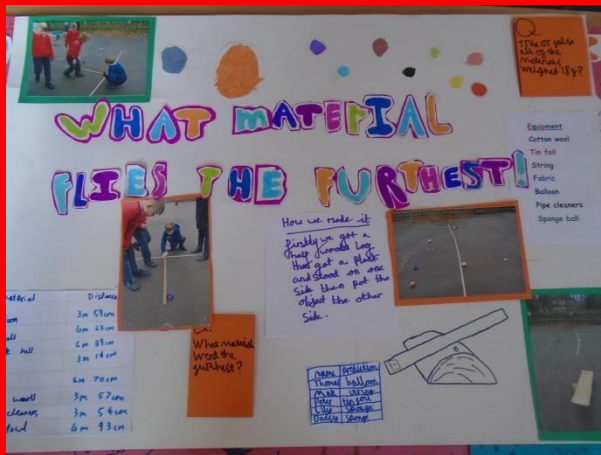 Q.
True or false
all of the
materials
weighed 18g?
WHAT MATERIAL
FLIES THE FURTHEST!
Equipment
Cotton wool
Tin foil
String
Fabric
Balloon
Pipe cleaners
Sponge ball
How we made it
Firstly we got a
half wooden log
then got a plank
and stood on one
side then put the
object the other
side.
Material Distance
3m 59cm
6m 23cm
6m 39cm
3m 14cm
6m 70cm
wool 3m 57cm
cleaners 3m 54cm
4m 93cm
What material
went the
furthest?
name Prediction
Thomas balloon
string
Peter tin foil
Lilly sponge
Daisy sponge